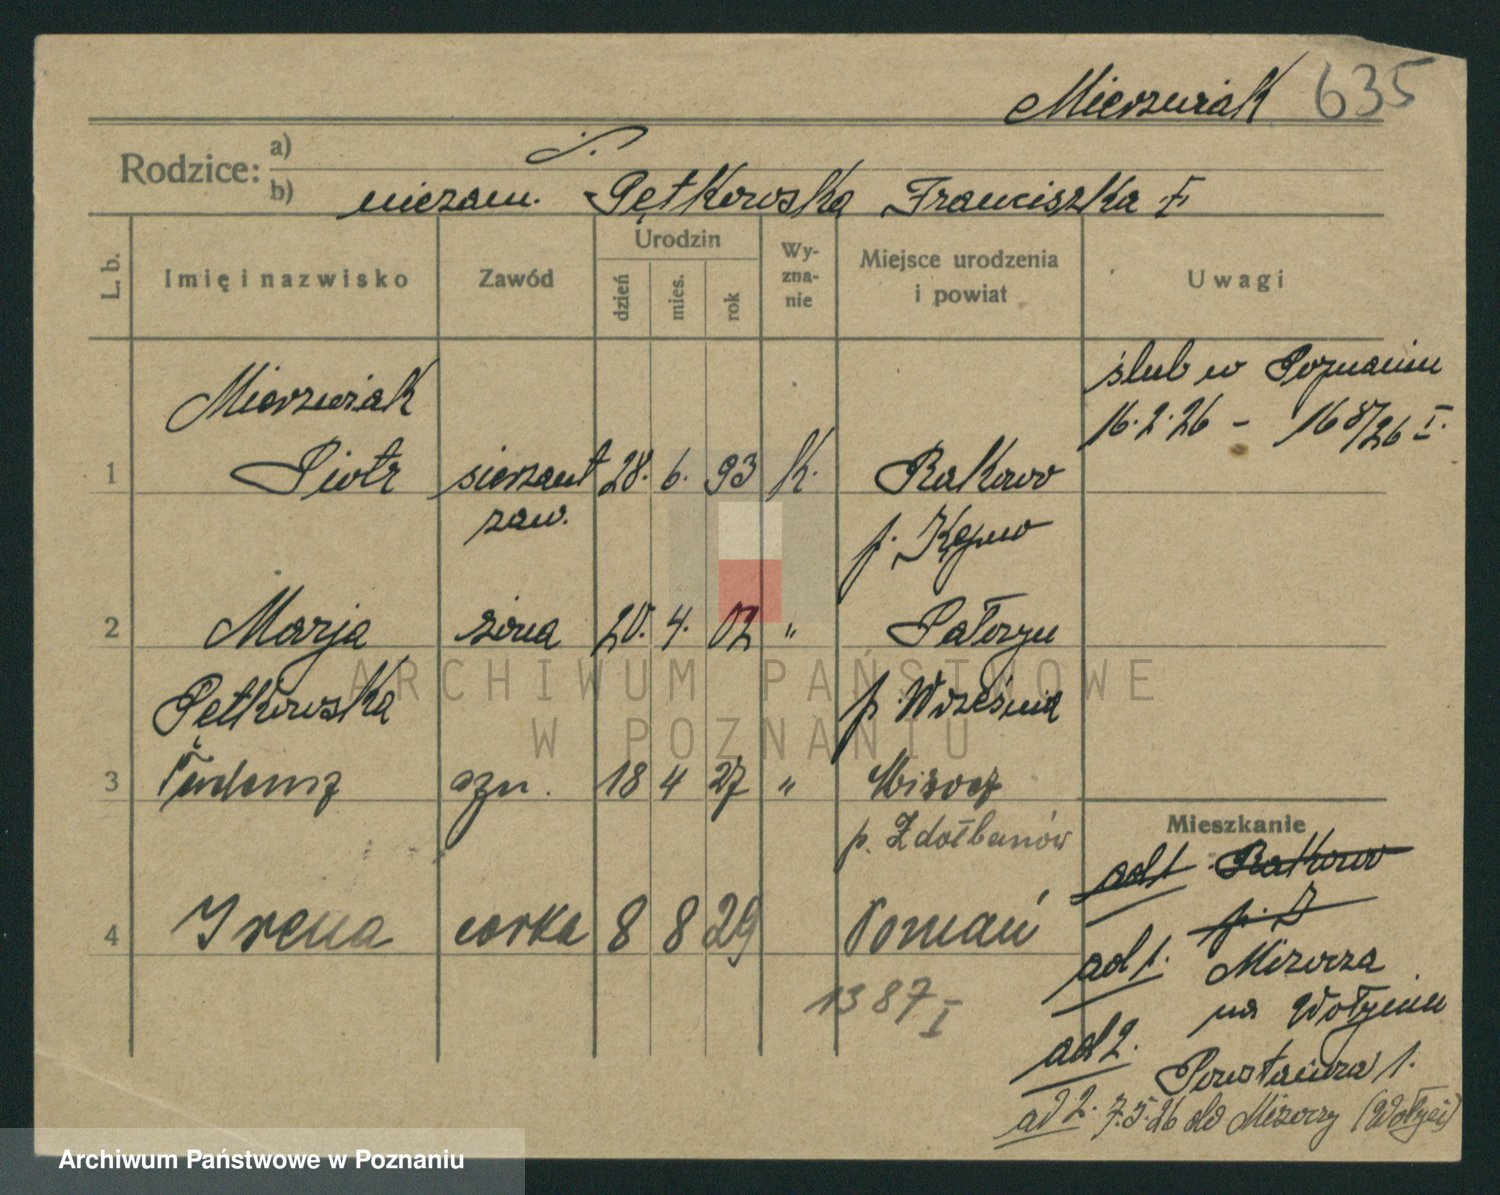 Mierzwiak 635
Rodzice: a)
b) niezam. Pętkowska Franciszka
L. b.
Imię i nazwisko
Zawód
Urodzin
dzień
mies.
rok
Wy-
zna-
nie
Miejsce urodzenia
i powiat
Uwagi
ślub w Poznaniu
16.2.26 - 168/26 I.
Mierzwiak
1 Piotr sierżant 28. 6. 93 K. Rakowo
zaw.
2 Marja żona 20. 4. 02 "
p. Września
Pętkowska
3 syn. 18 4 27 " Mizocz
p. Zdołbunów
Mieszkanie
ad 1 Rakowo
4 Irena córka 8 8 29 Poznań
ad 1. Mizocza
na Wołyniu
1387 I
ad 2. Powstańcza 1.
ad 2. 7.5.26 do Mizoczy
ARCHIWUM PAŃSTWOWE
W POZNANIU
Archiwum Państwowe w Poznaniu